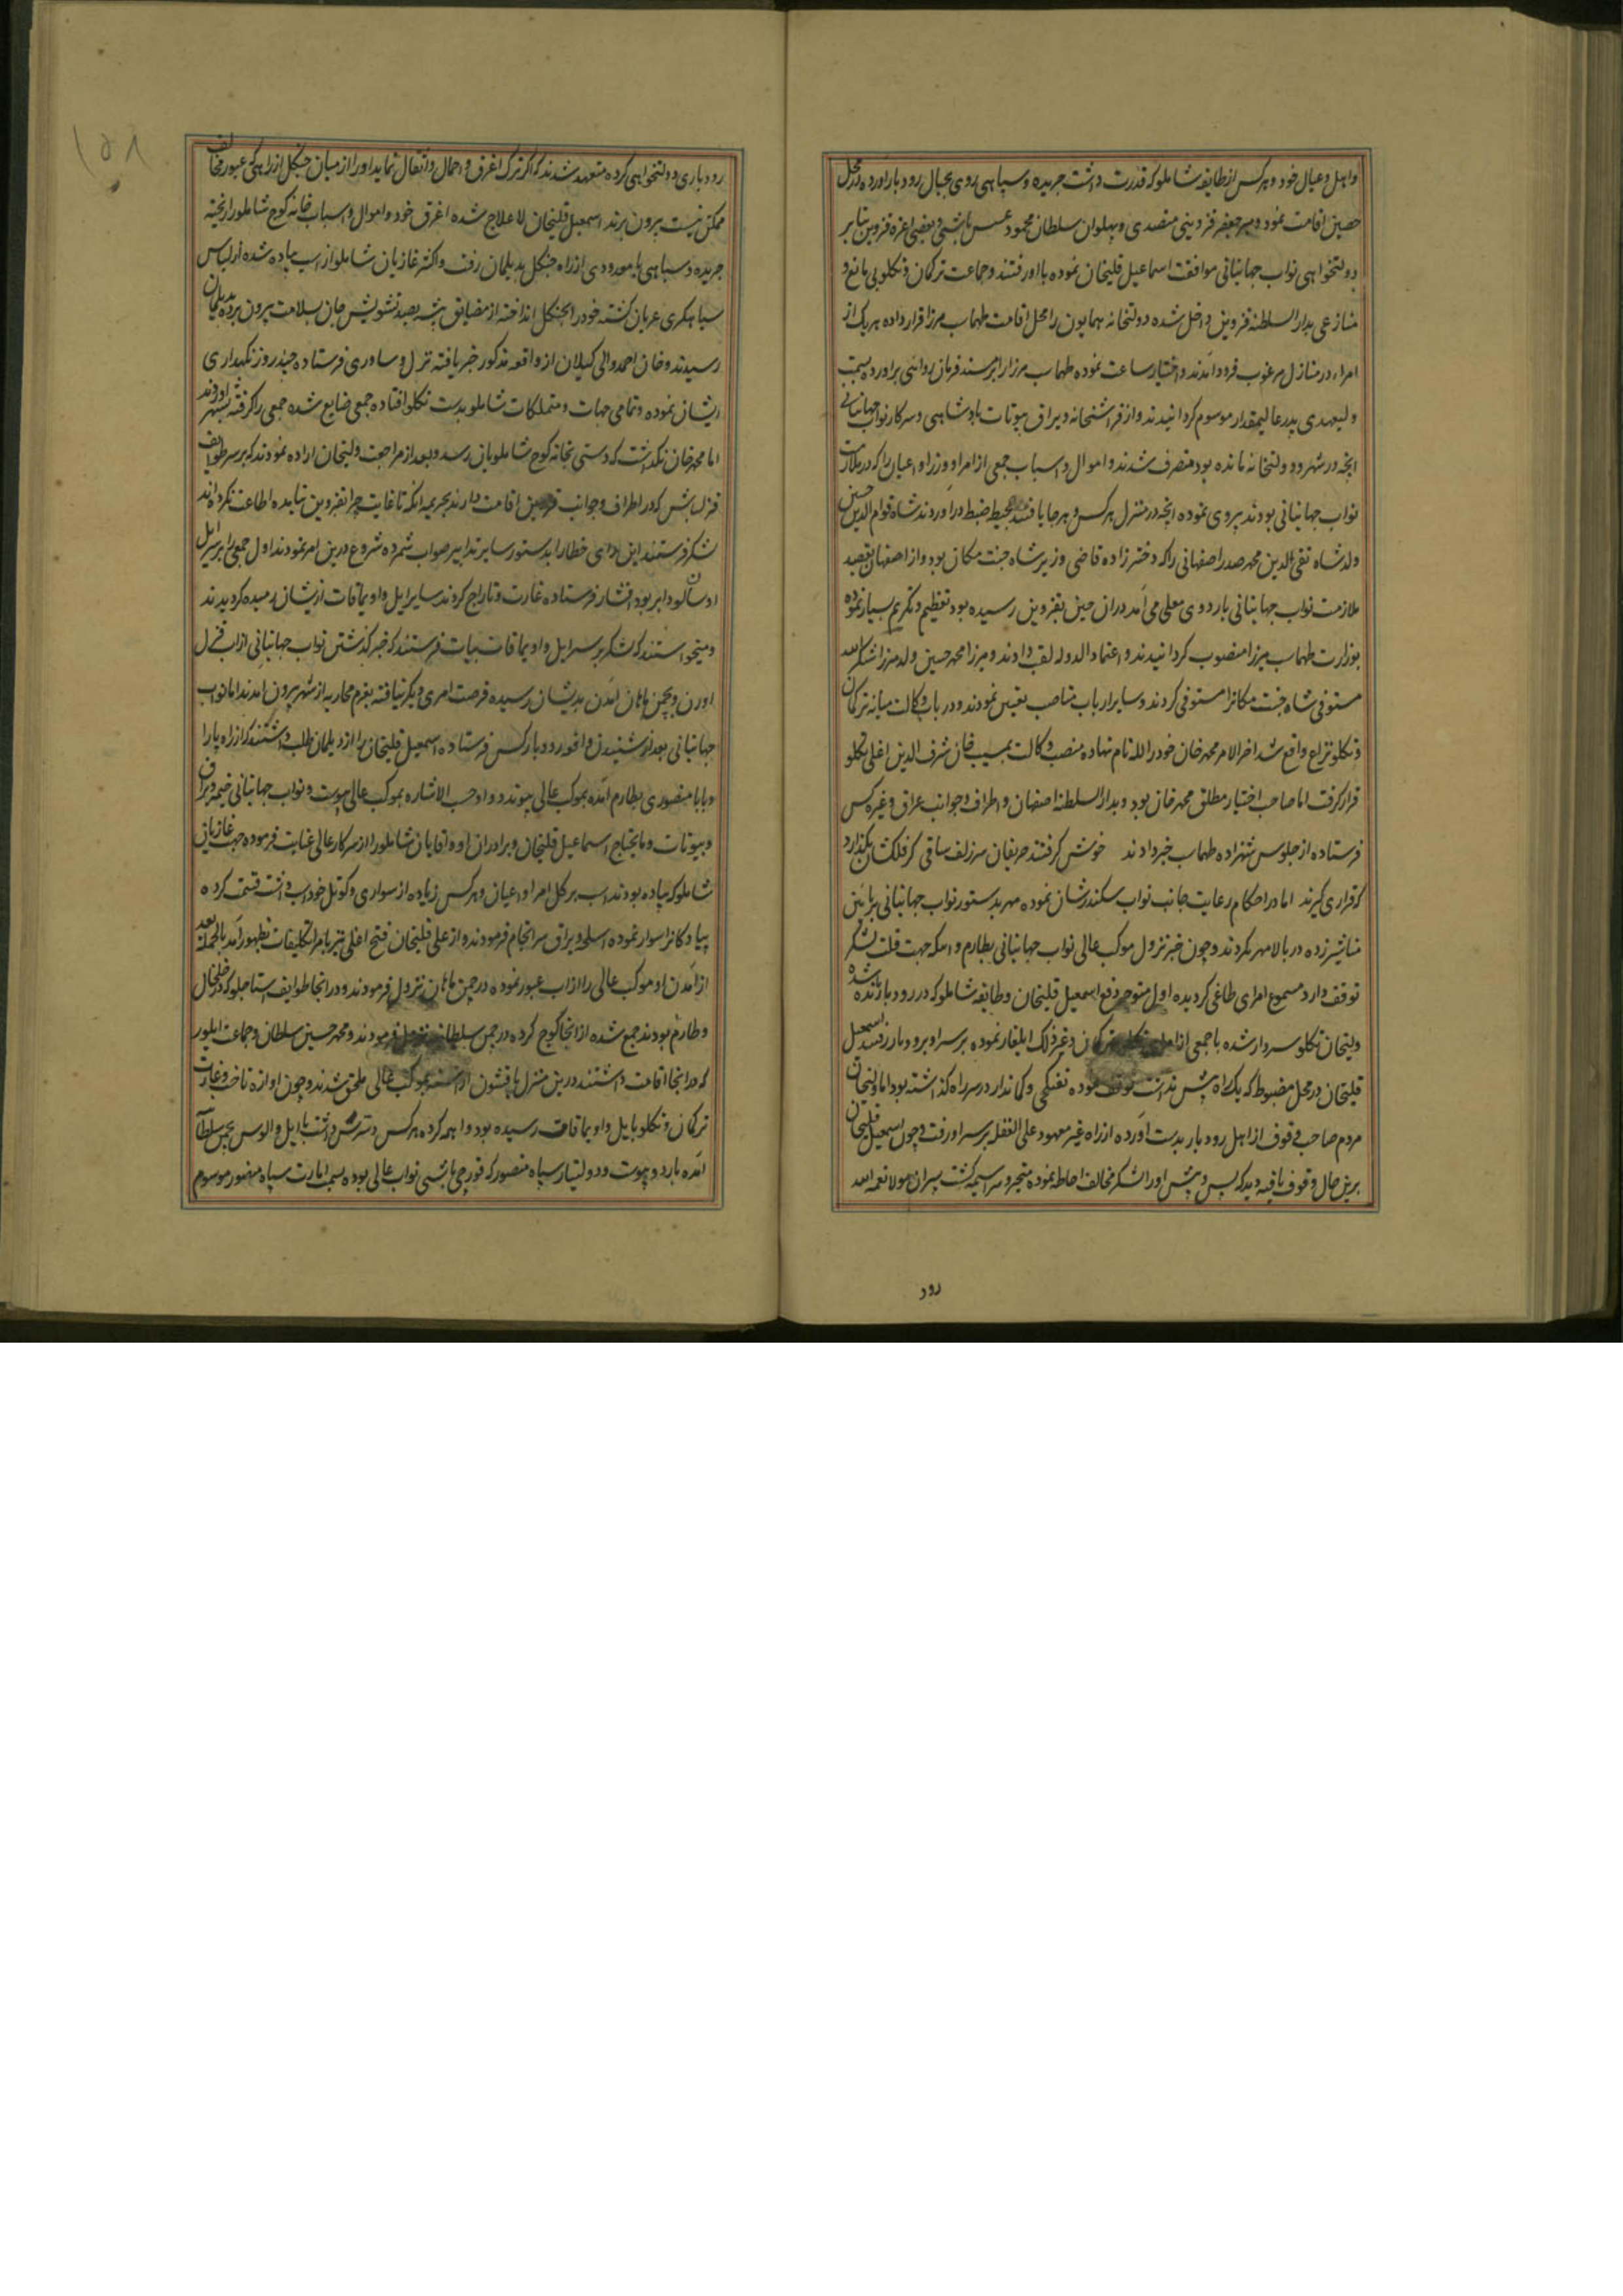 واهل وعیال خود وهرکس از طایفه شاملو که قدرت داشت جریده وسپاهی روی بجبال رودبار آورده در محل
حصین اقامت نمود ومیر جعفر قزوینی مقصدی وپهلوان سلطان محمود عسس باشی وبعضی اعزه قزوین بنابر
دولتخواهی نواب جهانبانی موافقت اسماعیل قلیخان نموده با او رفتند وجماعت ترکمان وتکلو بی مانع و
منازعی بدارالسلطنه قزوین داخل شده دولتخانه همایون را محل اقامت طهماسب میرزا قرار داده هریک از
امراء در منازل مرغوب فرود آمدند واختیار ساعت نموده طهماسب میرزا را بر مسند فرمان روائی برآورده بسمت
ولیعهدی پدر عالیمقدار موسوم گردانیدند واز فراشخانه ویراق بیوتات پادشاهی وسرکار نواب جهانبانی
آنچه در شهر ودولتخانه مانده بود متصرف شدند واموال واسباب جمعی از امراء ووزراء واعیان را که در ملازمت
نواب جهانبانی بودند پیروی نموده آنچه در منزل هرکس وهرجا یافتند بحیطه ضبط درآوردند شاه قوام الدین حسین
ولد شاه تقی الدین محمد صدر اصفهانی را که دختر زاده قاضی وزیر شاه جنت مکان بود واز اصفهان بقصد
ملازمت نواب جهانبانی باردوی معلی می آمد در آن حین بقزوین رسیده بود تعظیم وتکریم بسیار نموده
بوزارت طهماسب میرزا منصوب گردانیدند واعتمادالدوله لقب دادند ومیرزا محمد حسین ولد میرزا شکرالله
مستوفی شاه جنت مکانرا مستوفی کردند وسایر ارباب مناصب تعیین نمودند ودر باب وکالت میانه ترکمان
وتکلو نزاع واقع شد آخرالامر محمد خان خود را لله نام نهاده منصب وکالت بمسیب خان شرف الدین اغلی تکلو
قرار گرفت اما صاحب اختیار مطلق محمد خان بود وبدارالسلطنه اصفهان واطراف وجوانب عراق وغیره کس
فرستاده از جلوس شهزاده طهماسب خبر دادند خوش گرفتند حریفان سر زلف ساقی گر فلکشان بگذارد
که قراری گیرند اما در احکام رعایت جانب نواب سکندرشان نموده مهر بدستور نواب جهانبانی پرائین
مناشیر زده در بالا مهر نکردند وچون خبر نزول موکب عالی نواب جهانبانی بطارم واینکه جهت قلت لشکر
توقف دارد مسموع امرای طاغی گردیده اول متوجه دفع اسمعیل قلیخان وطایفه شاملو که در رودبار مانده شده
ولیخان تکلو سردار شده با جمعی از امرای تکلو وترکمان وغیر ذلک ایلغار نموده بر سر او برودبار رفتند اسمعیل
قلیخان در محل مضبوط که یک راه بیش نداشت توقف نموده تفنگچی وکماندار در سر راه گذاشته بود اما ولیخان
مردم صاحب وقوف از اهل رودبار بدست آورده از راه غیر معهود علی الغفله بر سر او رفت وچون اسمعیل قلیخان
برین حال وقوف یافته دید که پس وپیش او را لشکر مخالف احاطه نموده متحیر وسراسیمه گشت پسران مولا نعمه الله
رود
رودباری دولتخواهی کرده متعهد شدند که اگر ترک اغرق واحمال واثقال نماید او را از میان جنگل از راهی که عبور مخالف
ممکن نیست بیرون برند اسمعیل قلیخان لاعلاج شده اغرق خود واموال واسباب خانه کوچ شاملو را ریخته
جریده وسپاهی با معدودی از راه جنگل بدیلمان رفت واکثر غازیان شاملو از اسب پیاده شده از لباس
سپاهگری عریان گشته خود را بجنگل انداخته از مضایق بیشه بصد تشویش جان بسلامت بیرون برده بدیلمان
رسیدند وخان احمد والی گیلان از واقعه مذکور خبر یافته نزل وساوری فرستاده چند روز نگهداری
ایشان نموده وتمامی جهات ومتملکات شاملو بدست تکلو افتاده جمعی ضایع شده جمعی را گرفته بشهر آوردند
اما محمد خان نگذاشت که دستی بخانه کوچ شاملویان رسد وبعد از مراجعت ولیخان اراده نمودند که بر سر طوایف
قزلباش که در اطراف وجوانب قزوین اقامت دارند بجریمه آنکه تا غایت چرا بقزوین نیامده اطاعت نکرده اند
لشکر فرستند این رای خطا را بدستور سایر تدابیر صواب شمرده شروع درین امر نمودند اول جمعی را بر سر ایل
اوسالو وایربودانشار فرستاده غارت وتاراج کردند سایر ایل واویماقات از یشان رمیده گردیدند
ومیخواستند که لشکر بر سر ایل واویماقات بیات فرستند که خبر گذشتن نواب جهانبانی از آب قزل
اوزن وبچمن هاهان آمدن بدیشان رسیده فرصت امری دیگر نیافته بعزم محاربه از شهر بیرون آمدند اما نواب
جهانبانی بعد از شنیدن واقعه رودبار کس فرستاده اسمعیل قلیخان را از دیلمان طلب داشتند که از راه پارا
وبابا منصوری بطارم آمده بموکب عالی پیوندد واو حسب الاشاره بموکب عالی پیوست ونواب جهانبانی خیمه ویراق
وبیوتات ومایحتاج اسماعیل قلیخان وبرادران او واقایان شاملو را از سرکار عالی عنایت فرموده جهت غازیان
شاملو که پیاده بودند اسب بر کل امراء واعیان وهرکس زیاده از سواری وکوتل خود اسب داشت قسمت کرده
پیادگانرا سوار نموده اسلحه ویراق سرانجام فرمودند واز علی قلیخان فتح اغلی نیز بامر تکلیفات بظهور آمد بالجمله بعد
از آمدن او موکب عالی را از آب عبور نموده در چمن هاهان نزول فرمودند ودر آنجا طوایف استاجلو که در خلخال
وطارم بودند جمع شده از آنجا کوچ کرده در چمن سلطانیه نزول فرمودند ومحمد حسین سلطان وجماعت ایلور
که در آنجا اقامت داشتند درین منزل با قشون آراسته بموکب عالی ملحق شدند وچون آوازه تاخت وغارت
ترکمان وتکلو بایل واویماقات رسیده بود واهمه کرده هرکس دسترس داشت با ایل والوس بچمن سلطانیه
آمده باردو پیوست ودولتیار سیاه منصور که قورچی باشی نواب عالی بود بسمت امارت سیاه منصور موسوم
۱۵۸